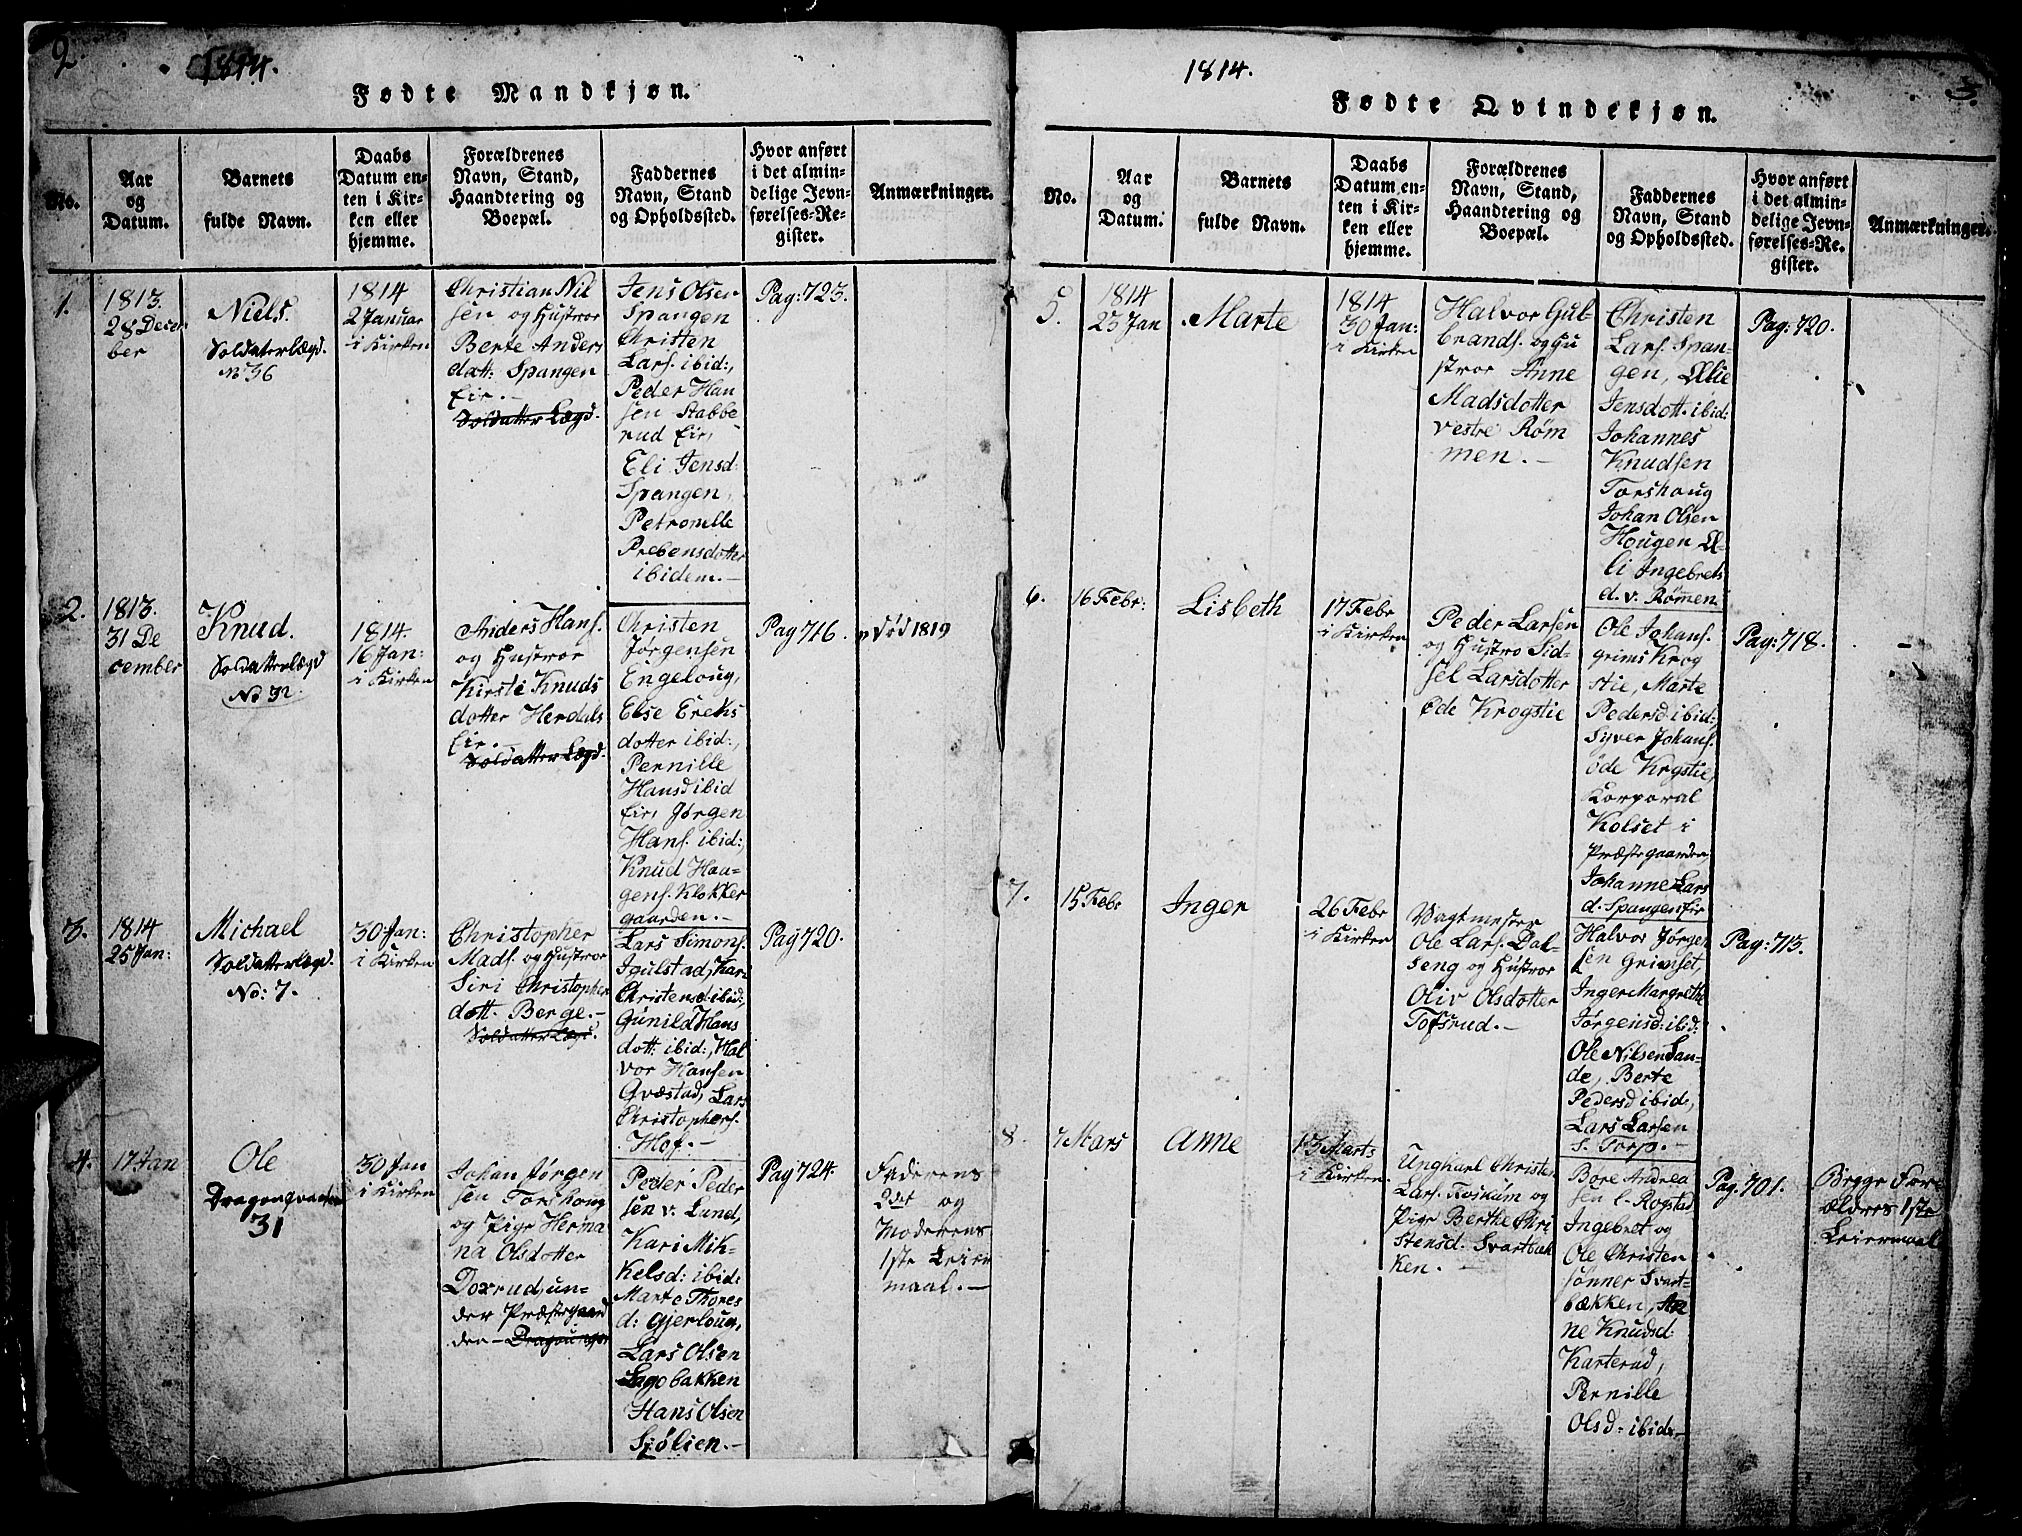 2.
1814.
Fødte Mandkjøn.
No.
Aar
og
Datum.
Barnets
fulde Navn.
Daabs
Datum en-
ten i Kir-
ken eller
hjemme.
Forældrenes
Navn, Stand,
Haandtering og
Boepæl.
Faddernes
Navn, Stand
og Opholdssted.
Hvor anført
i det almin-
delige Jevn-
førelses-Re-
gister.
Anmærkninger.
1.
1813.
28 Decem
ber
Niels.
Soldaterlægd.
No 36
1814
2 Januar
i Kirken
Christian Nil
sen og Hustroe
Berte Anders
datt: Spangen
Eir.-
Soldatter Lægd.
Jens Olsen
Spangen
Christen
Lars. ibid:,
Peder Han
sen Stabbe
rud Eir,
Eli Jensd:
Spangen,
Petronelle
Prebensdotter
ibidem.-
Pag: 723.
2.
1813.
31 De
cember
Knud.
Soldatterlægd
No 32
1814.
16 Jan:
i Kirken
Anders Hans.
og Hustroe
Kirsti Knuds
dotter Herdals
Eir.-
Soldatter Lægd.
Christen
Jørgensen
Engeloug,
Else Ereks
dotter ibid:,
Pernille
Hansd ibid
Eir, Jørgen
Hans. ibid:,
Knud Haa-
gens. Klokker
gaarden.-
Pag 716.
Død 1819
3.
1814
25 Jan:
Michael
Soldatterlægd.
No: 7.
30 Jan:
i Kirken
Christopher
Mads. og Hustroe
Siri Christopher
dott. Berge.-
Soldatter Lægd.
Lars Simons.
Igulstad, Kari
Christensd ibid:
Gunild Hans
dott: ibid:, Hal
vor Hansen
Gvæstad, Lars
Christophers.
Hof.-
Pag 720.
4.
17 Jan
Ole
Dragonqvarteer
31
30 Jan
i Kirken
Johan Jørgen
sen Torshoug
og Pige Herma
na Olsdotter
Doxrud, un-
der Præstegaar
den-
Peder Peder
sen v. Lund,
Kari Mik-
kelsd: ibid:
Marte Thores
d: Gjerloug,
Lars Olsen
Sagobakken
Hans Olsen
Sjølien.-
Pag 724.
Faderens
2det og
Moderens
1ste Leier
maal.-
1814.
3.
Fødte Qvindekjøn.
No.
Aar
og
Datum.
Barnets
fulde Navn.
Daabs
Datum en-
ten i Kir-
ken eller
hjemme.
Forældrenes
Navn, Stand,
Haandtering og
Boepæl.
Faddernes
Navn, Stand
og Opholdssted.
Hvor anført
i det almin-
delige Jevn-
førelses-Re-
gister.
Anmærkninger.
5.
1814
23 Jan
Marte
1814
30 Jan:
i Kirken
Halvor Gul-
brands. og Hu
stroe Anne
Madsdotter
vestre Røm
men.-
Christen
Lars. Span-
gen, Ælie
Jensdott. ibid:
Johannes
Knudsen
Torshoug
Johan Olsen
Hougen Æ-
li Ingebrets
d. v. Rømen.
Pag: 720.
6.
16 Febr:
Lisbeth
17 Febr
i Kirken
Peder Larsen
og Hustro Sid-
sel Larsdotter
Øde Krogstie
Ole Johans.
grims Krog
stie, Marte
Pedersd ibid:
Syver Johans.
øde Krogstie,
Korporal
Kolset i
Præstegaarden
Johanne Lars
d: Spangen Eir
Pag: 718.
7.
15 Febr
Inger
26 Febr
i Kirken
Vagtmester
Ole Lars. Dal-
seng og Hustroe
Oliv Olsdotter
Tofsrud.-
Halvor Jørgen
sen Grimset,
Inger Margrethe
Jørgensd: ibid:
Ole Nilsen San-
de, Berte
Pedersd ibid:,
Lars Larsen
s. Torp.-
Pag: 713.
8.
7 Mars
Anne
13 Marts
i Kirken.
Ungkarl Christen
Lars. Roskum og
Pige Berthe Chri
stensd. Svartbæk
ken.-
Børe Andrea
sen l. Rogstad
Ingebret og
Ole Christen
sønner Svart-
bækken, An
ne Knudsd:
Karterud,
Pernille
Olsd: ibid.-
Pag. 701.
Begge For
ældres 1ste
Leiermaal